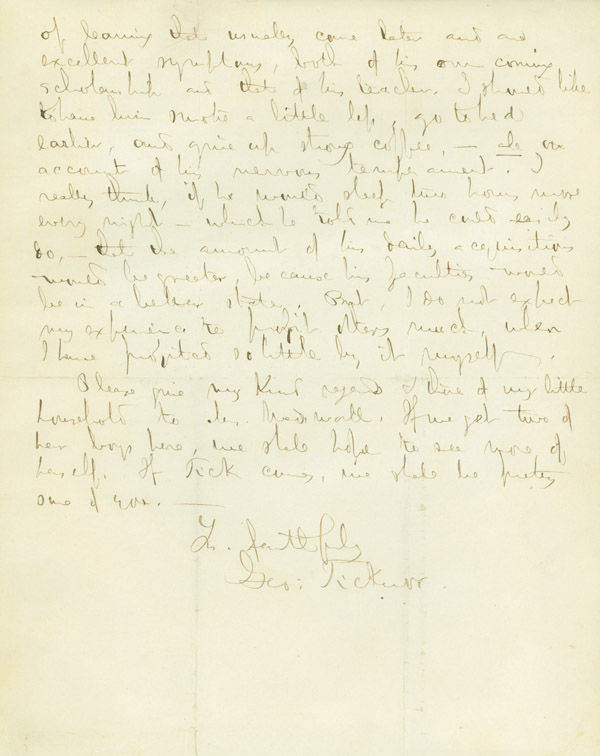 of learning that usually come later and are
excellent symptoms, both of his own coming
scholarship and that of his teacher. I should like
to have him smoke a little less, go to bed
earlier, and give up strong coffee, — all on
account of his nervous temperament. I
really think, if he would sleep two hours more
every night — which he told me he could easily
do, — that the amount of his daily acquisitions
would be greater, because his faculties would
be in a better state. But, I do not expect
my experience to profit others much, when
I have profited so little by it myself.
Please give my kind regards & those of my little
household to Mrs. Wadsworth. If we get two of
her boys here, we shall hope to see more of
herself. If Tick comes, we shall be pretty
sure of you. —
Yrs. faithfully
Geo: Ticknor.